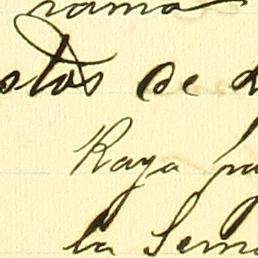 ramo
stos de
Raya pa
la Sema